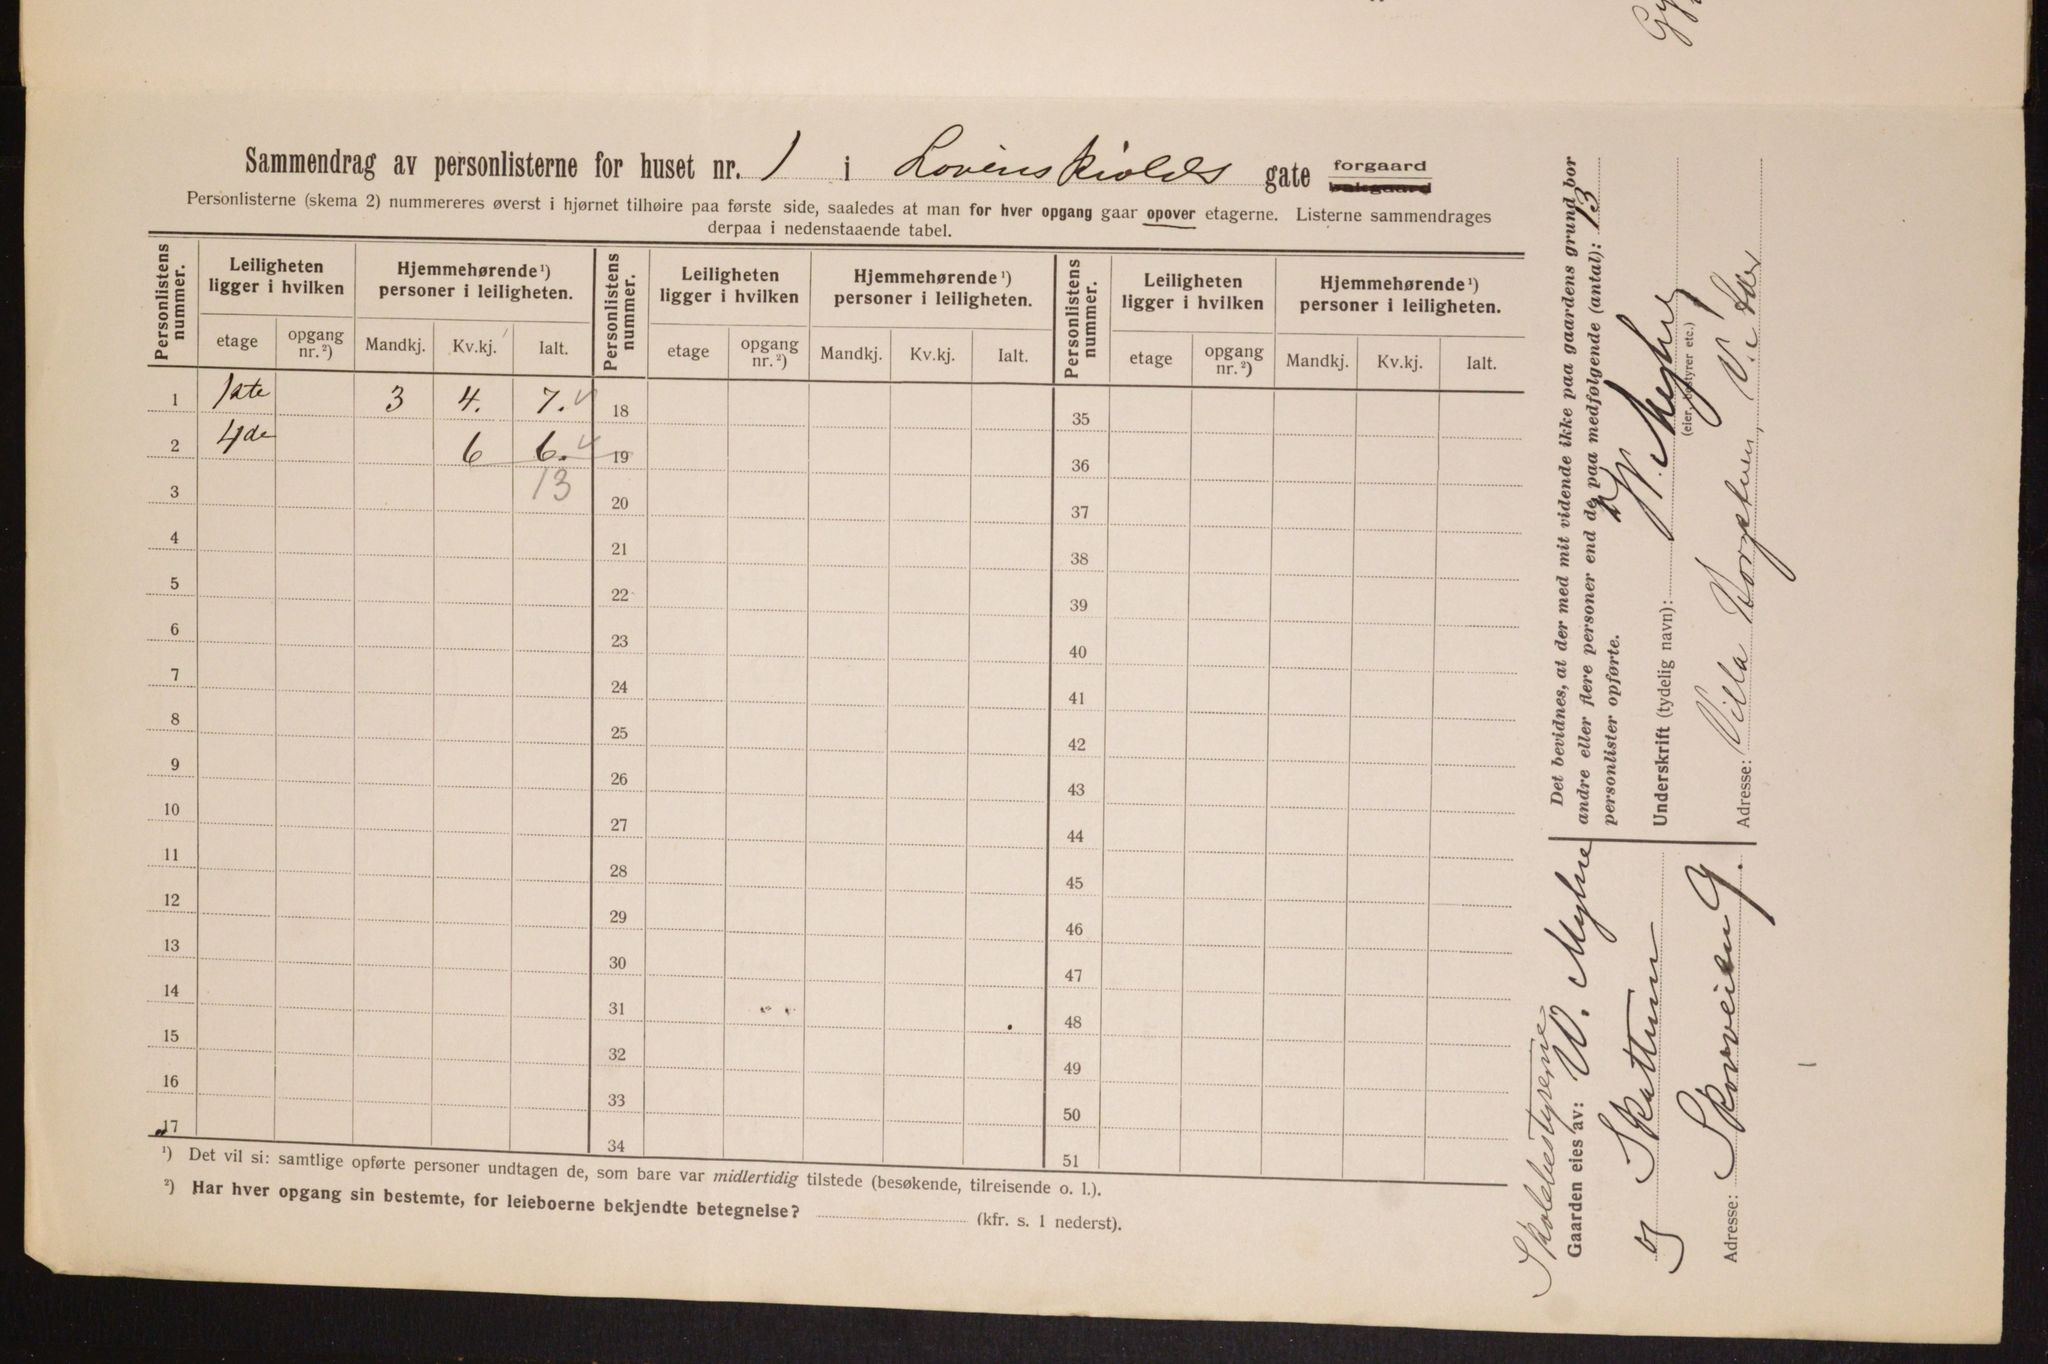 Sammendrag av personlisterne for huset nr. 1 i Lovenskiolds gate forgaard bakgaard
Personlisterne (skema 2) nummereres øverst i hjørnet tilhøire paa første side, saaledes at man for hver opgang gaar opover etagerne. Listerne sammendrages
derpaa i nedenstaaende tabel.
Personlistens nummer. Leiligheten ligger i hvilken Hjemmehørende ¹) personer i leiligheten. Personlistens nummer. Leiligheten ligger i hvilken Hjemmehørende ¹) personer i leiligheten. Personlistens nummer. Leiligheten ligger i hvilken Hjemmehørende ¹) personer i leiligheten.
etage opgang nr. ²) Mandkj. Kv.kj. Ialt. etage opgang nr. ²) Mandkj. Kv.kj. Ialt. etage opgang nr. ²) Mandkj. Kv.kj. Ialt.
1 1ste 3 4. 7. 18 35
2 4de 6 6. 19 36
3 13 20 37
4 21 38
5 22 39
6 23 40
7 24 41
8 25 42
9 26 43
10 27 44
11 28 45
12 29 46
13 30 47
14 31 48
15 32 49
16 33 50
17 34 51
¹) Det vil si: samtlige opførte personer undtagen de, som bare var midlertidig tilstede (besøkende, tilreisende o. l.).
²) Har hver opgang sin bestemte, for leieboerne bekjendte betegnelse? (kfr. s. 1 nederst).
Det bevidnes, at der med mit vidende ikke paa gaardens grund bor
andre eller flere personer end de paa medfølgende (antal): 13
personlister opførte.
Underskrift (tydelig navn): W. Myhre
(eier, bestyrer etc.)
Adresse: Villa V. Aker
Skolebestyrerne
Gaarden eies av: W. Myhre
og Skattum
Adresse: Skovveien 9.